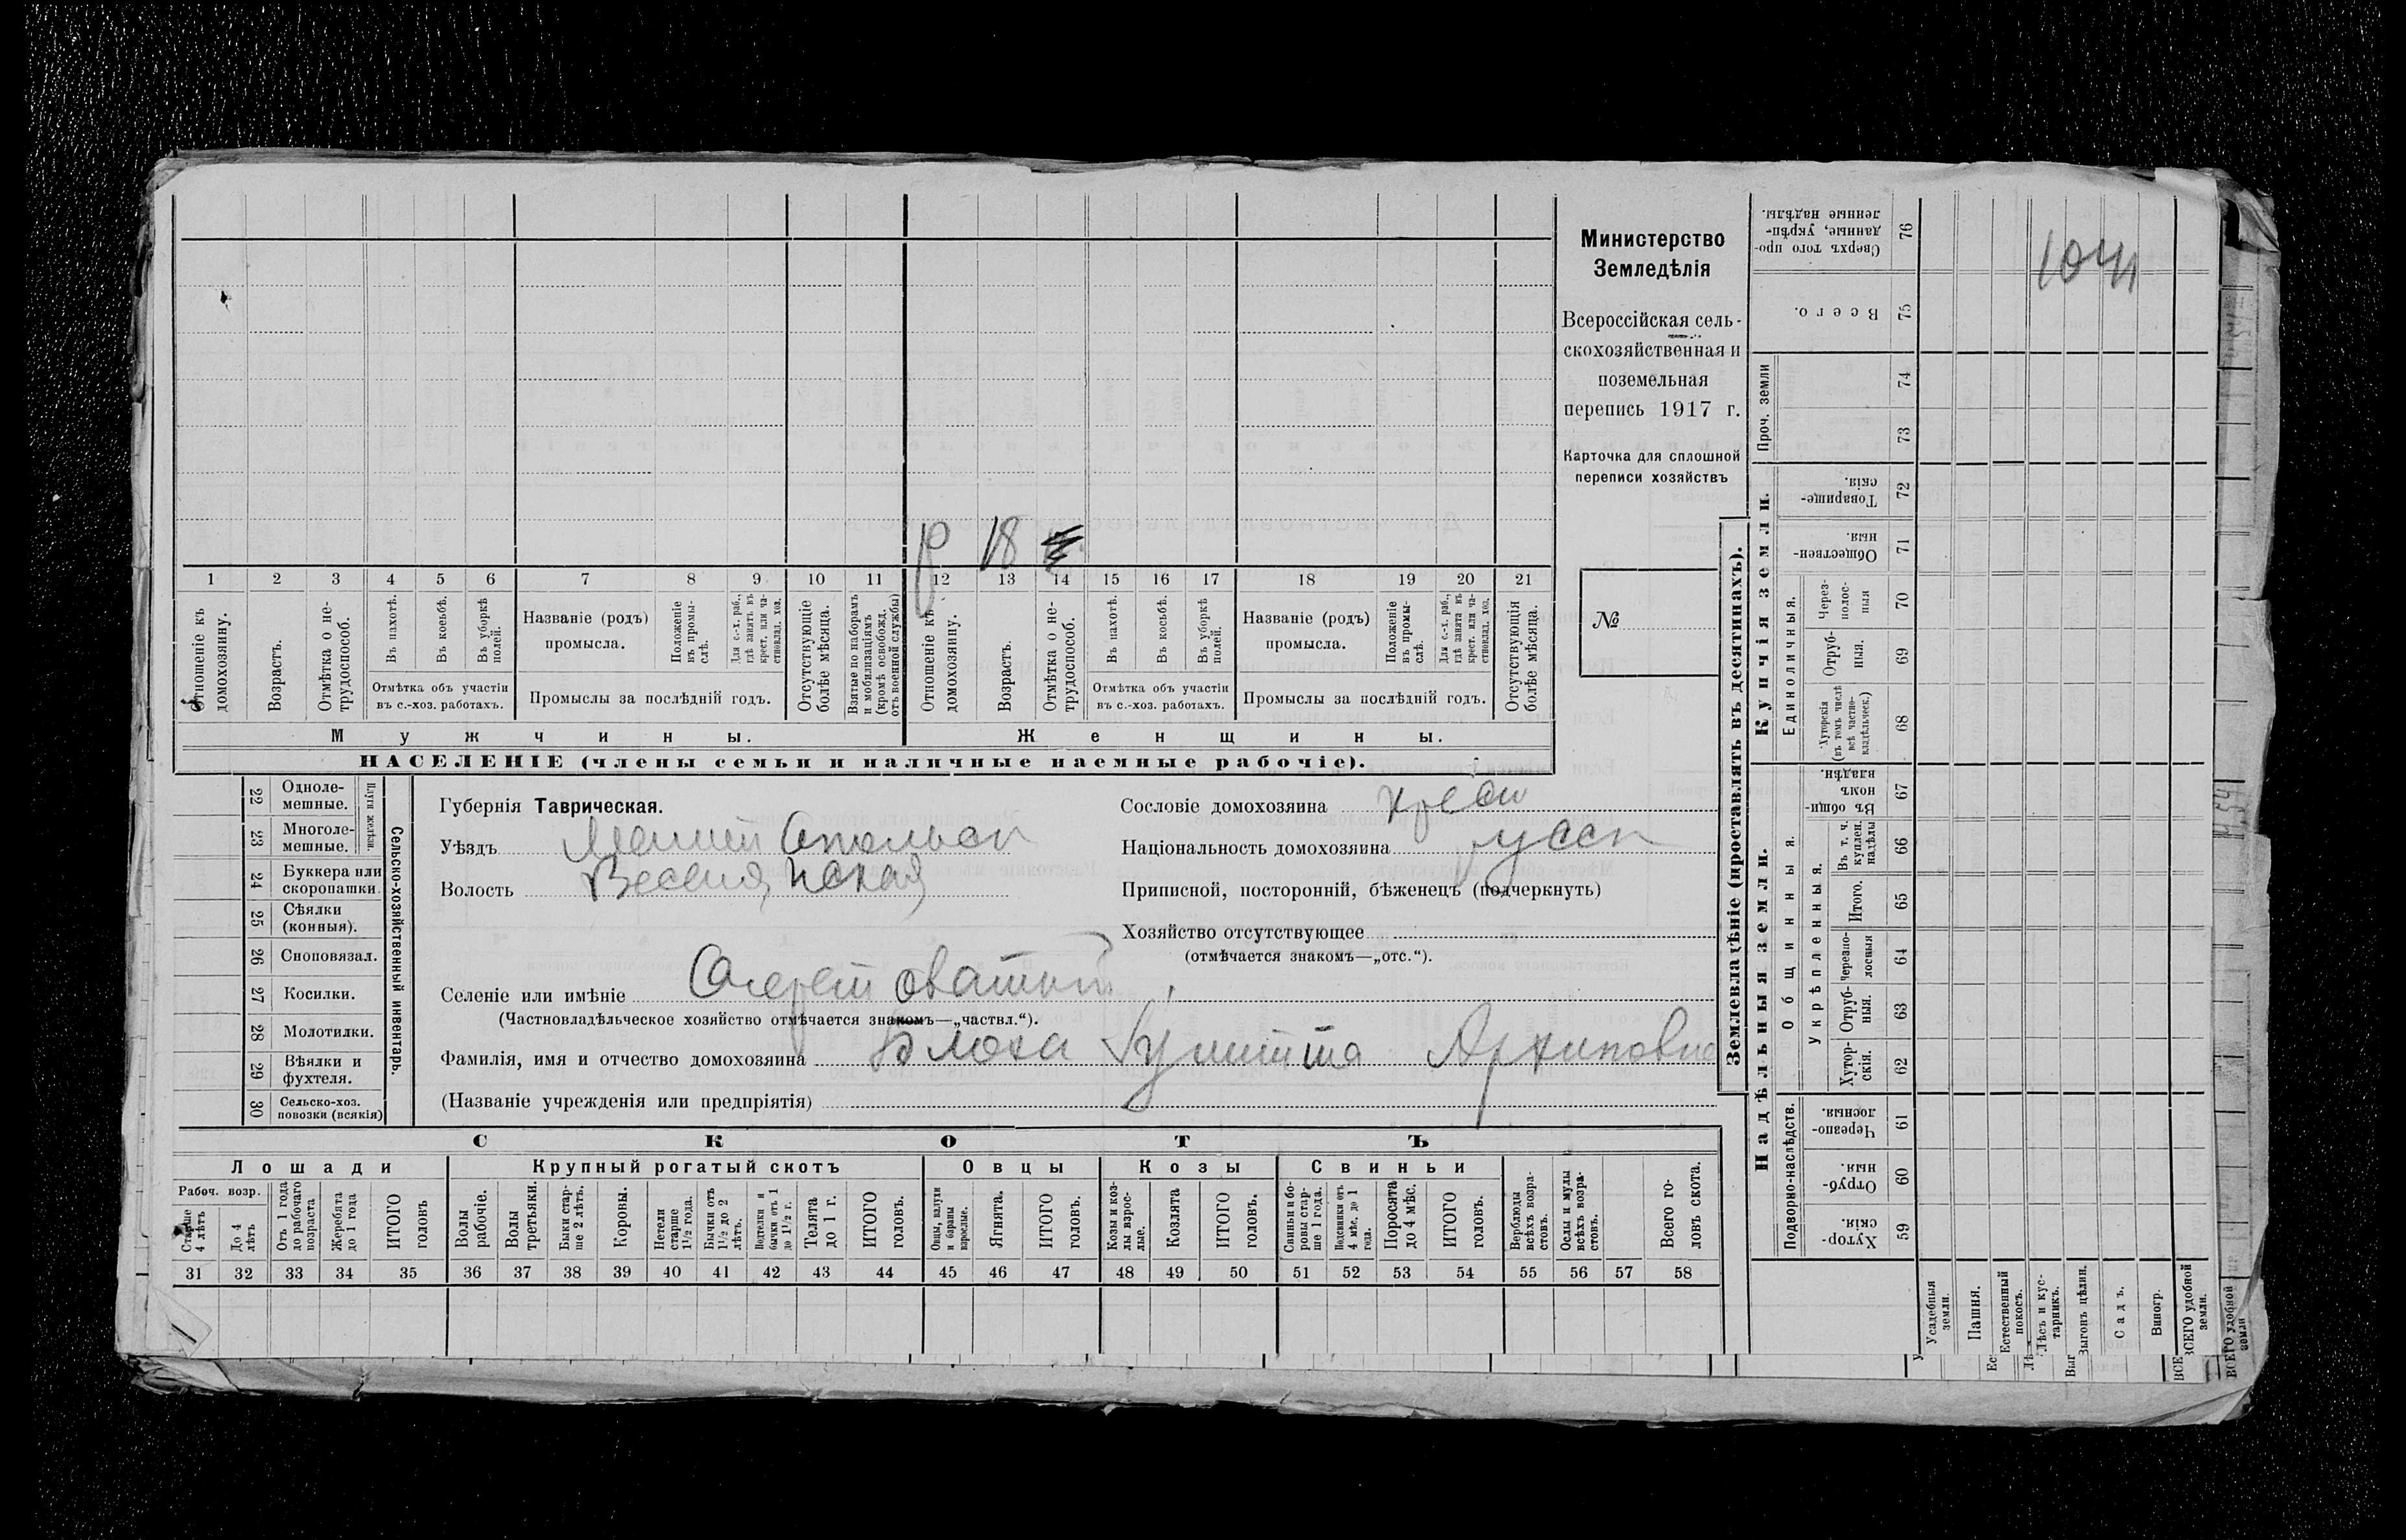 Министерство
Земледѣлія
Всероссійская сель-
скохозяйственная и
поземельная
перепись 1917 г.
Карточка для сплошной
переписи хозяйствъ
№
р 18
1 2 3 4 5 6 7 8 9 10 11 12 13 14 15 16 17 18 19 20 21
Отношеніе къ домохозяину.
Возрастъ.
Отмѣтка о не-трудоспособ.
Въ пахотѣ.
Въ косьбѣ.
Въ уборкѣ полей.
Отмѣтка объ участіи
въ с.-хоз. работахъ.
Названіе (родъ)
промысла.
Положеніе въ промы-слѣ.
Для с.-х. раб., гдѣ занятъ въ крест. или ча-стновлад. хоз.
Промыслы за послѣдній годъ.
Отсутствующіе болѣе мѣсяца.
Взятые по наборамъ и мобилизаціямъ (кромѣ освобожд. отъ военной службы)
Отношеніе къ домохозяину.
Возрастъ.
Отмѣтка о не-трудоспособ.
Въ пахотѣ.
Въ косьбѣ.
Въ уборкѣ полей.
Отмѣтка объ участіи
въ с.-хоз. работахъ.
Названіе (родъ)
промысла.
Положеніе въ промы-слѣ.
Для с.-х. раб., гдѣ занята въ крест. или ча-стновлад. хоз.
Промыслы за послѣдній годъ.
Отсутствующія болѣе мѣсяца.
Мужчины. Женщины.
НАСЕЛЕНІЕ (члены семьи и наличные наемные рабочіе).
22 Одноле-мешные.
23 Многоле-мешные.
Плуги желѣзн.
24 Буккера или скоропашки.
25 Сѣялки (конныя).
26 Сноповязал.
27 Косилки.
28 Молотилки.
29 Вѣялки и фухтеля.
30 Сельско-хоз. повозки (всякія)
Сельско-хозяйственный инвентарь.
Губернія Таврическая.
Уѣздъ
Волость
Селеніе или имѣніе
(Частновладѣльческое хозяйство отмѣчается знакомъ—„частвл.“).
Фамилія, имя и отчество домохозяина Блоха
(Названіе учрежденія или предпріятія)
Сословіе домохозяина
Національность домохозяина русск
Приписной, посторонній, бѣженецъ (подчеркнуть)
Хозяйство отсутствующее
(отмѣчается знакомъ—„отс.“).
СКОТЪ
Лошади Крупный рогатый скотъ Овцы Козы Свиньи
Рабоч. возр.
Старше 4 лѣтъ
До 4 лѣтъ
Отъ 1 года до рабочаго возраста
Жеребята до 1 года
ИТОГО головъ
Волы рабочіе.
Волы третьяки.
Быки стар-ше 2 лѣтъ.
Коровы.
Нетели старше 1½ года.
Бычки отъ 1½ до 2 лѣтъ.
Подтелки и бычки отъ 1 до 1½ г.
Телята до 1 г.
ИТОГО головъ.
Овцы, валухи и бараны взрослые.
Ягнята.
ИТОГО головъ.
Козы и коз-лы взрос-лые.
Козлята
ИТОГО головъ.
Свиньи и бо-ровы стар-ше 1 года.
Подсвинки отъ 4 мѣс. до 1 года.
Поросята до 4 мѣс.
ИТОГО головъ.
Верблюды всѣхъ возра-стовъ.
Ослы и мулы всѣхъ возра-стовъ.
Всего го-ловъ скота.
31 32 33 34 35 36 37 38 39 40 41 42 43 44 45 46 47 48 49 50 51 52 53 54 55 56 57 58
Землевладѣніе (проставлять въ десятинахъ).
Купчія земли.
Надѣльныя земли.
Сверхъ того про-данные, укрѣп-ленные надѣлы. 76
Всего. 75
Проч. земли
74
73
Товарище-скія. 72
Обществен-ныя. 71
Единоличныя.
Через-полос-ныя 70
Отруб-ныя. 69
Хуторскія (въ томъ числѣ всѣ частно-владѣльческ.) 68
Общинныя.
Въ общи-номъ владѣн. 67
Укрѣпленныя.
Въ т. ч. куплен. надѣлы 66
Итого. 65
Черезпо-лосныя 64
Отруб-ныя. 63
Хутор-скія. 62
Подворно-наслѣдств.
Черезпо-лосныя. 61
Отруб-ныя. 60
Хутор-скія. 59
Усадебныя земли.
Пашня.
Естественный покосъ.
Лѣсъ и кус-тарникъ.
Выгонъ цѣлин.
Садъ.
Виногр.
ВСЕГО удобной земли.
ВСЕГО удобной земли